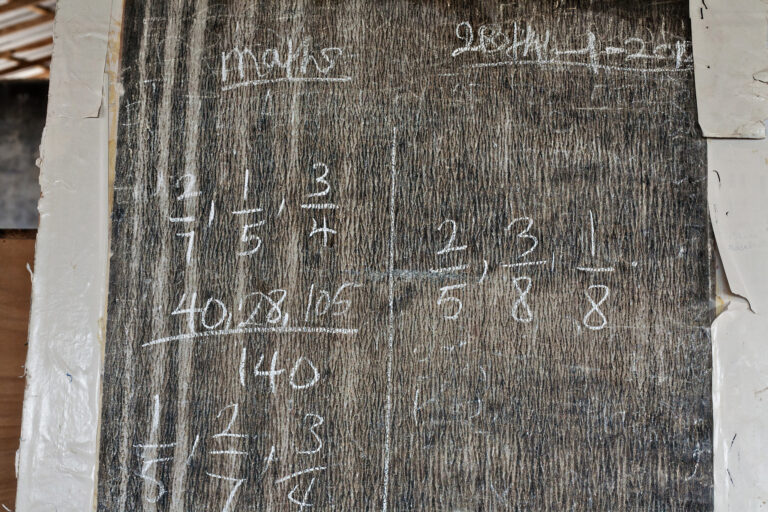 maths
2/7, 1/5, 3/4
40, 28, 105
140
1/5, 2/7, 3/4
2/5, 3/8, 1/8